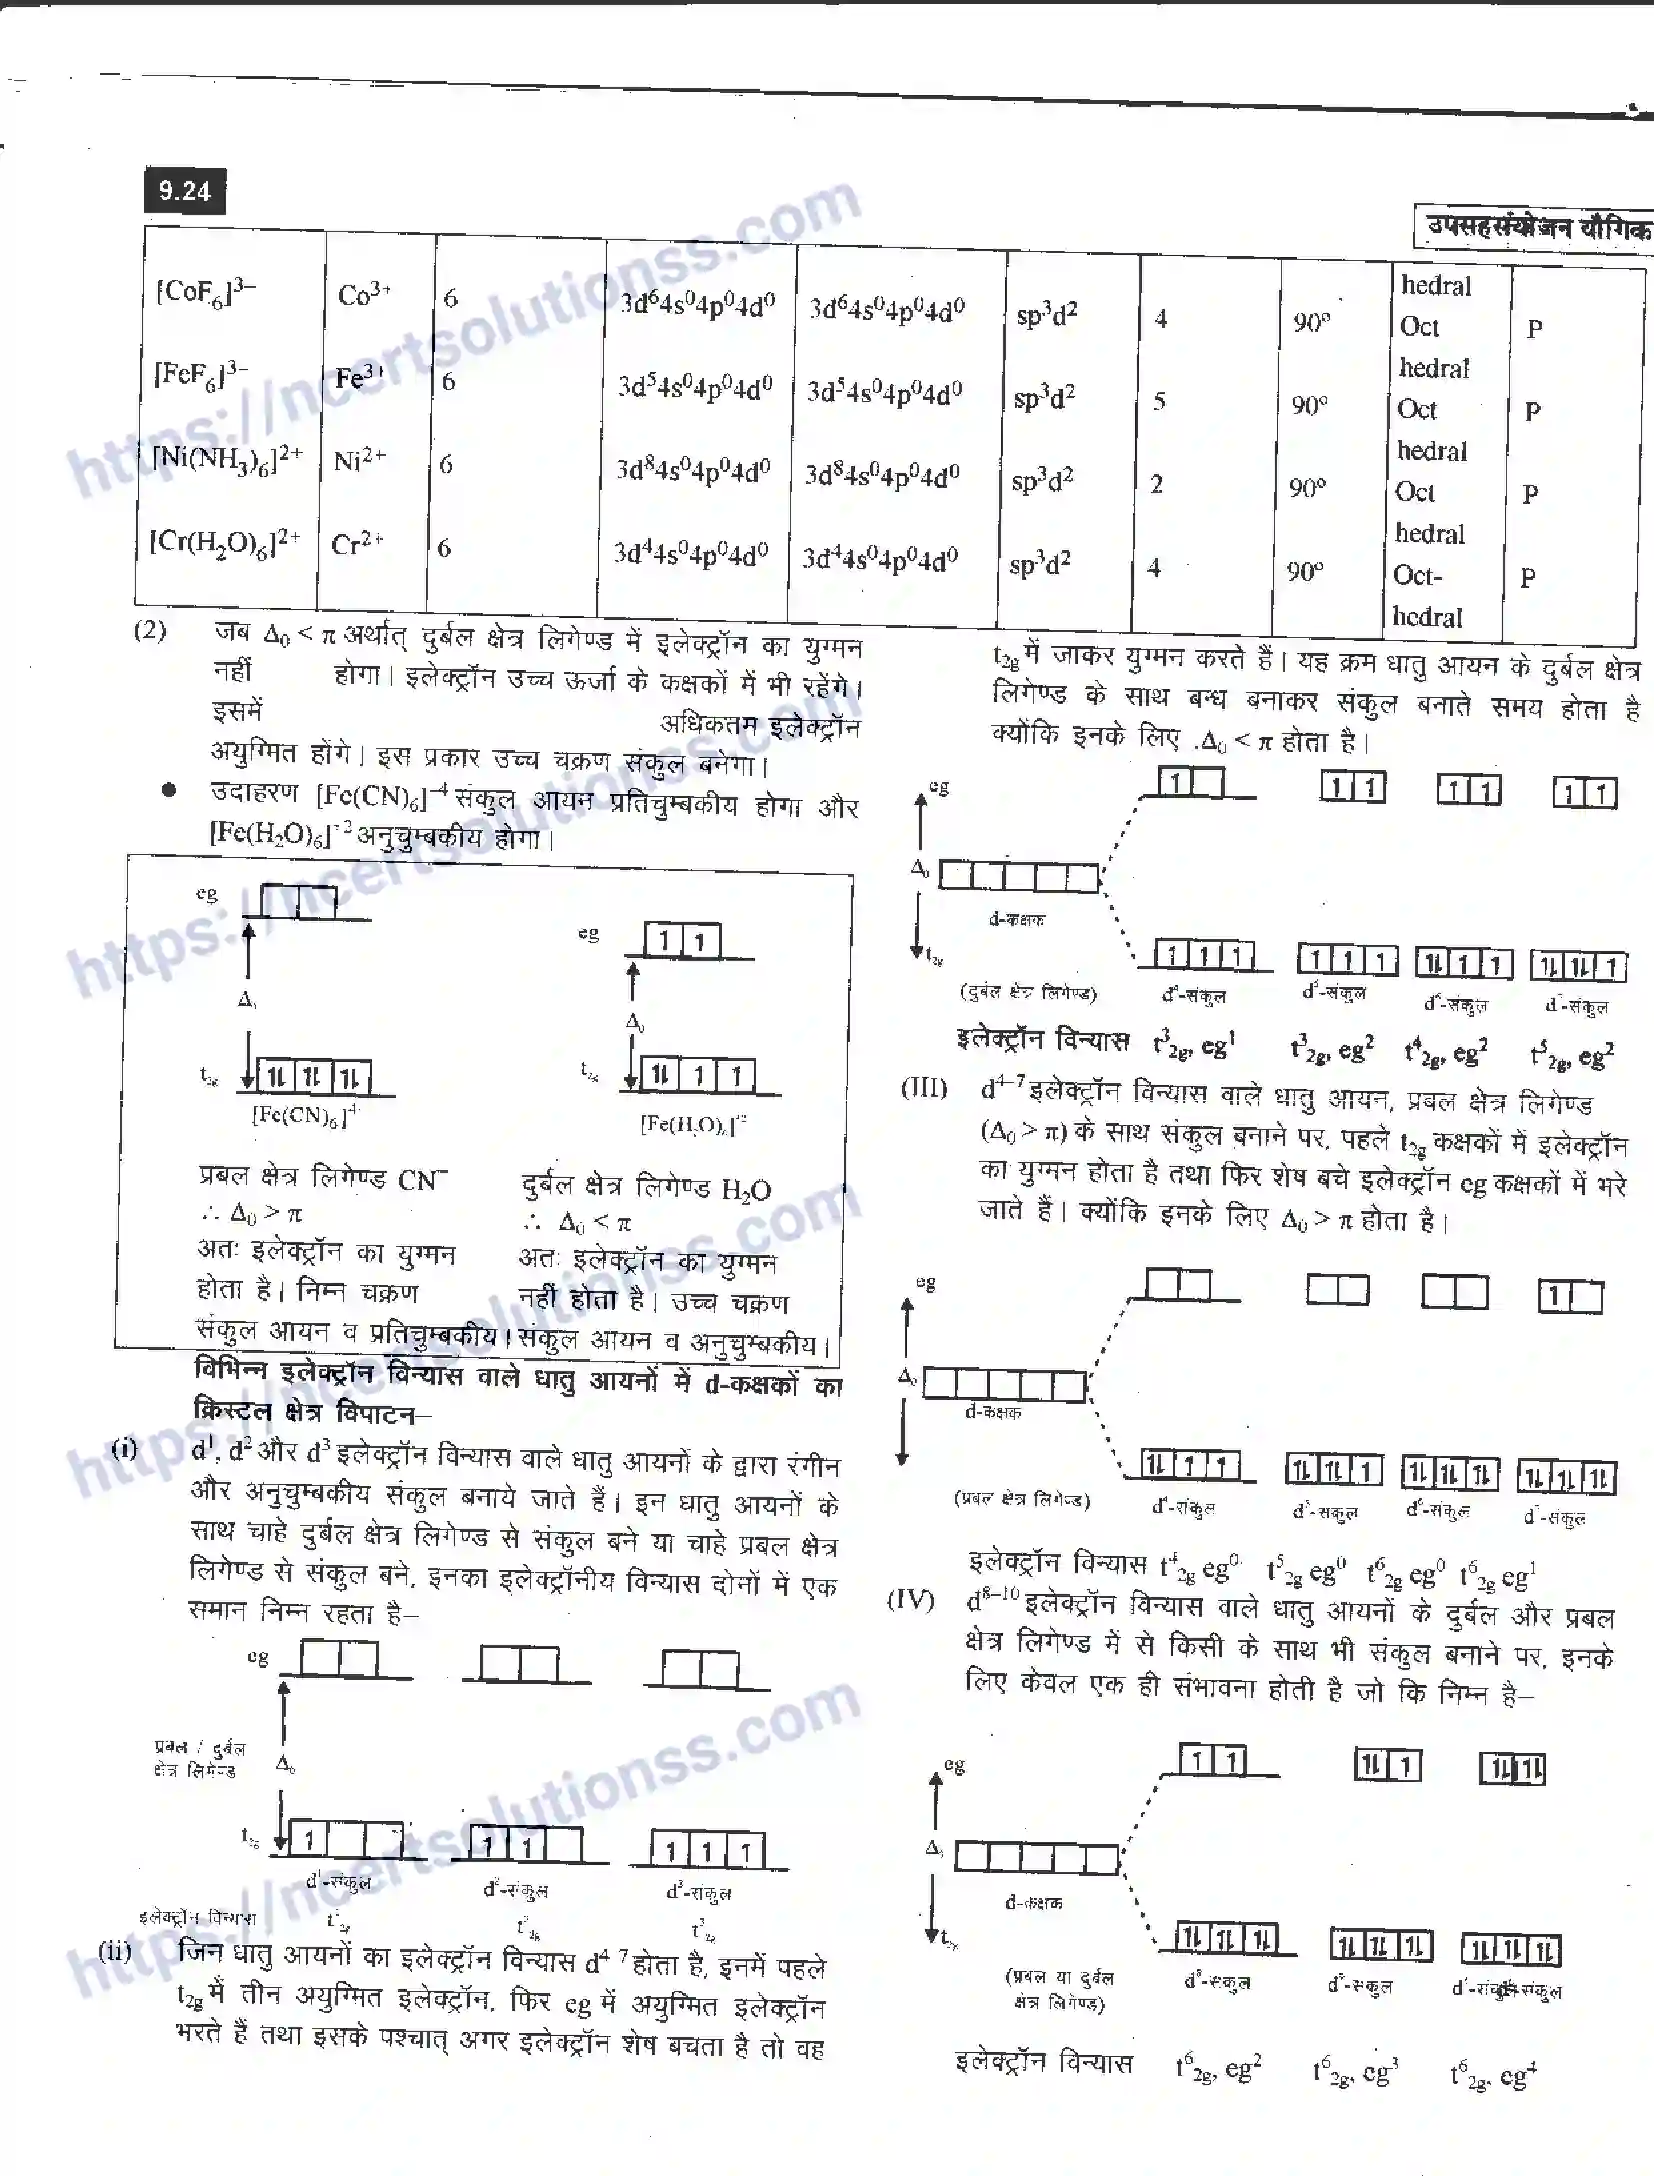 9.24
उपसहसंयोजन यौगिक
hedral
[CoF6]3– Co3+ 6 3d64s04p04d0 3d64s04p04d0 sp3d2 4 90° Oct P
hedral
[FeF6]3– Fe3+ 6 3d54s04p04d0 3d54s04p04d0 sp3d2 5 90° Oct P
hedral
[Ni(NH3)6]2+ Ni2+ 6 3d84s04p04d0 3d84s04p04d0 sp3d2 2 90° Oct P
hedral
[Cr(H2O)6]2+ Cr2+ 6 3d44s04p04d0 3d44s04p04d0 sp3d2 4 90° Oct- P
hedral
(2) जब Δ0 < π अर्थात् दुर्बल क्षेत्र लिगेण्ड में इलेक्ट्रॉन का युग्मन
नहीं होगा। इलेक्ट्रॉन उच्च ऊर्जा के कक्षकों में भी रहेंगे।
इसमें अधिकतम इलेक्ट्रॉन
अयुग्मित होंगे। इस प्रकार उच्च चक्रण संकुल बनेगा।
● उदाहरण [Fe(CN)6]–4 संकुल आयन प्रतिचुम्बकीय होगा और
[Fe(H2O)6]+2 अनुचुम्बकीय होगा।
eg
eg 1 1
Δ0
Δ0
t2g 1L 1L 1L
t2g 1L 1 1
[Fe(CN)6]–4
[Fe(H2O)6]+2
प्रबल क्षेत्र लिगेण्ड CN–
∴ Δ0 > π
अतः इलेक्ट्रॉन का युग्मन
होता है। निम्न चक्रण
संकुल आयन व प्रतिचुम्बकीय।
दुर्बल क्षेत्र लिगेण्ड H2O
∴ Δ0 < π
अतः इलेक्ट्रॉन का युग्मन
नहीं होता है। उच्च चक्रण
संकुल आयन व अनुचुम्बकीय।
विभिन्न इलेक्ट्रॉन विन्यास वाले धातु आयनों में d-कक्षकों का
क्रिस्टल क्षेत्र विपाटन–
(i) d1, d2 और d3 इलेक्ट्रॉन विन्यास वाले धातु आयनों के द्वारा रंगीन
और अनुचुम्बकीय संकुल बनाये जाते हैं। इन धातु आयनों के
साथ चाहे दुर्बल क्षेत्र लिगेण्ड से संकुल बने या चाहे प्रबल क्षेत्र
लिगेण्ड से संकुल बने, इनका इलेक्ट्रॉनीय विन्यास दोनों में एक
समान निम्न रहता है–
eg
प्रबल / दुर्बल
क्षेत्र लिगेण्ड
Δ0
t2g 1 1 1 1 1 1
d1-संकुल d2-संकुल d3-संकुल
इलेक्ट्रॉन विन्यास t12g t22g t32g
(ii) जिन धातु आयनों का इलेक्ट्रॉन विन्यास d4–7 होता है, इनमें पहले
t2g में तीन अयुग्मित इलेक्ट्रॉन, फिर eg में अयुग्मित इलेक्ट्रॉन
भरते हैं तथा इसके पश्चात् अगर इलेक्ट्रॉन शेष बचता है तो वह
t2g में जाकर युग्मन करते हैं। यह क्रम धातु आयन के दुर्बल क्षेत्र
लिगेण्ड के साथ बन्ध बनाकर संकुल बनाते समय होता है
क्योंकि इनके लिए Δ0 < π होता है।
eg 1 1 1 1 1 1 1
Δ0
d-कक्षक
t2g 1 1 1 1 1 1 1L 1 1 1L 1L 1
(दुर्बल क्षेत्र लिगेण्ड) d4-संकुल d5-संकुल d6-संकुल d7-संकुल
इलेक्ट्रॉन विन्यास t32g, eg1 t32g, eg2 t42g, eg2 t52g, eg2
(III) d4–7 इलेक्ट्रॉन विन्यास वाले धातु आयन, प्रबल क्षेत्र लिगेण्ड
(Δ0 > π) के साथ संकुल बनाने पर, पहले t2g कक्षकों में इलेक्ट्रॉन
का युग्मन होता है तथा फिर शेष बचे इलेक्ट्रॉन eg कक्षकों में भरे
जाते हैं। क्योंकि इनके लिए Δ0 > π होता है।
eg 1
Δ0
d-कक्षक
1L 1 1 1L 1L 1 1L 1L 1L 1L 1L 1L
(प्रबल क्षेत्र लिगेण्ड) d4-संकुल d5-संकुल d6-संकुल d7-संकुल
इलेक्ट्रॉन विन्यास t42g eg0 t52g eg0 t62g eg0 t62g eg1
(IV) d8–10 इलेक्ट्रॉन विन्यास वाले धातु आयनों के दुर्बल और प्रबल
क्षेत्र लिगेण्ड में से किसी के साथ भी संकुल बनाने पर, इनके
लिए केवल एक ही संभावना होती है जो कि निम्न है–
eg 1 1 1L 1 1L 1L
Δ0
d-कक्षक
t2g 1L 1L 1L 1L 1L 1L 1L 1L 1L
(प्रबल या दुर्बल
क्षेत्र लिगेण्ड)
d8-संकुल d9-संकुल
इलेक्ट्रॉन विन्यास t62g, eg2 t62g, eg3 t62g, eg4
https://ncertsolutionss.com
https://ncertsolutionss.com
https://ncertsolutionss.com
https://ncertsolutionss.com